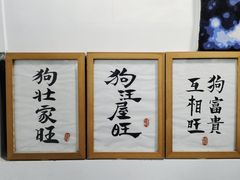 狗壮家旺
狗汪屋旺
狗富貴
互相旺